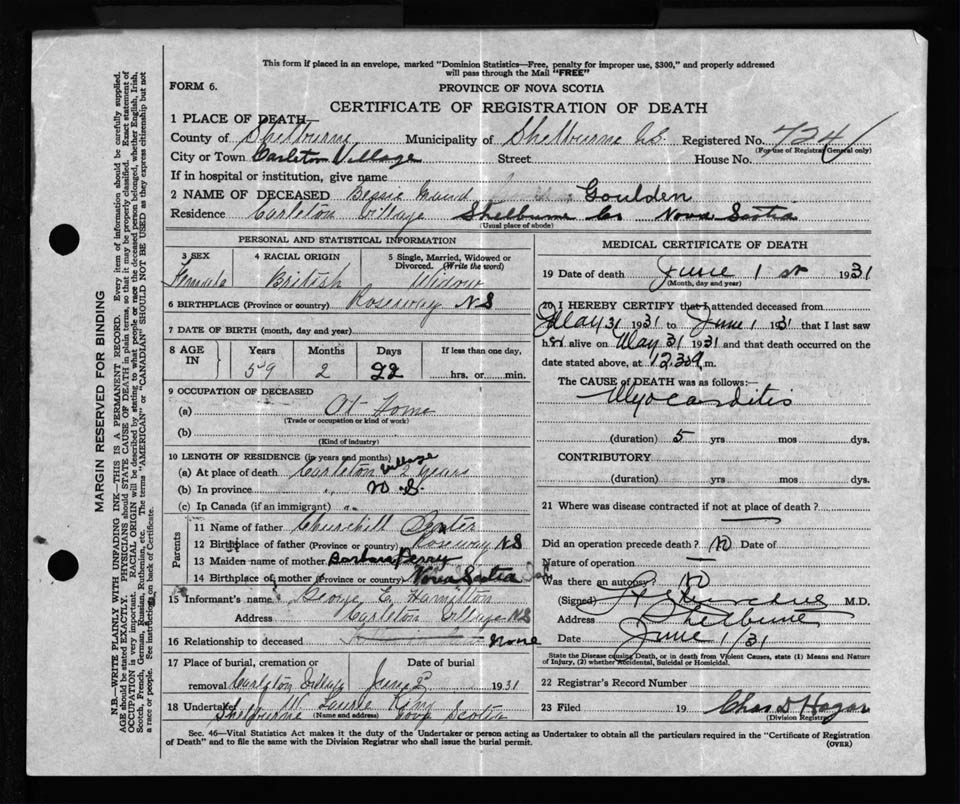 This form if placed in an envelope, marked "Dominion Statistics—Free, penalty for improper use, $300," and properly addressed
will pass through the Mail "FREE"
FORM 6.
PROVINCE OF NOVA SCOTIA
CERTIFICATE OF REGISTRATION OF DEATH
1 PLACE OF DEATH
County of Shelburne Municipality of Shelburne Co. Registered No. 7241
(For use of Registrar General only)
City or Town Carleton Village Street House No.
If in hospital or institution, give name
2 NAME OF DECEASED Bessie Maud Goulden
Residence Carleton Village Shelburne Co Nova Scotia
(Usual place of abode)
PERSONAL AND STATISTICAL INFORMATION
3 SEX 4 RACIAL ORIGIN 5 Single, Married, Widowed or
Divorced. (Write the word)
Female British Widow
6 BIRTHPLACE (Province or country) Roseway NS
7 DATE OF BIRTH (month, day and year)
8 AGE IN Years Months Days If less than one day,
59 2 22 hrs. or min.
9 OCCUPATION OF DECEASED
(a) At Home
(Trade or occupation or kind of work)
(b)
(Kind of industry)
10 LENGTH OF RESIDENCE (in years and months)
(a) At place of death Carleton Village 2 years
(b) In province " N. S.
(c) In Canada (if an immigrant) "
Parents
11 Name of father Churchill
12 Birthplace of father (Province or country) Roseway NS
13 Maiden name of mother Barbara Perry
14 Birthplace of mother (Province or country) Nova Scotia
15 Informant's name George E. Hamilton
Address Carleton Village NS
16 Relationship to deceased None
17 Place of burial, cremation or Date of burial
removal Carleton Village June 2 1931
18 Undertaker Laurie King
Shelburne (Name and address) Nova Scotia
MEDICAL CERTIFICATE OF DEATH
19 Date of death June 1st 1931
(Month, day and year)
20 I HEREBY CERTIFY that I attended deceased from
May 31 1931 to June 1 1931 that I last saw
her alive on May 31 1931 and that death occurred on the
date stated above, at m.
The CAUSE of DEATH was as follows:
Myocarditis
(duration) 5 yrs mos dys.
CONTRIBUTORY
(duration) yrs mos dys.
21 Where was disease contracted if not at place of death?
Did an operation precede death? No Date of
Nature of operation
Was there an autopsy? No
(Signed) M.D.
Address Shelburne
Date June 1/31
State the Disease causing Death, or in death from Violent Causes, state (1) Means and Nature
of Injury, (2) whether Accidental, Suicidal or Homicidal.
22 Registrar's Record Number
23 Filed 19 Chas D Hagar
(Division Registrar)
Sec. 46—Vital Statistics Act makes it the duty of the Undertaker or person acting as Undertaker to obtain all the particulars required in the "Certificate of Registration
of Death" and to file the same with the Division Registrar who shall issue the burial permit.
(OVER)
MARGIN RESERVED FOR BINDING
N.B.—WRITE PLAINLY WITH UNFADING INK—THIS IS A PERMANENT RECORD. Every item of information should be carefully supplied.
AGE should be stated EXACTLY. PHYSICIANS should STATE CAUSE OF DEATH in plain terms, so that it may be properly classified. Exact statement of
OCCUPATION is very important. RACIAL ORIGIN will be described by stating to what people or race the deceased person belonged, whether English, Irish,
Scotch, French, German, Russian, Ruthenian, etc. The terms "AMERICAN" or "CANADIAN" SHOULD NOT BE USED as they express citizenship but not
a race or people. See instructions on back of Certificate.